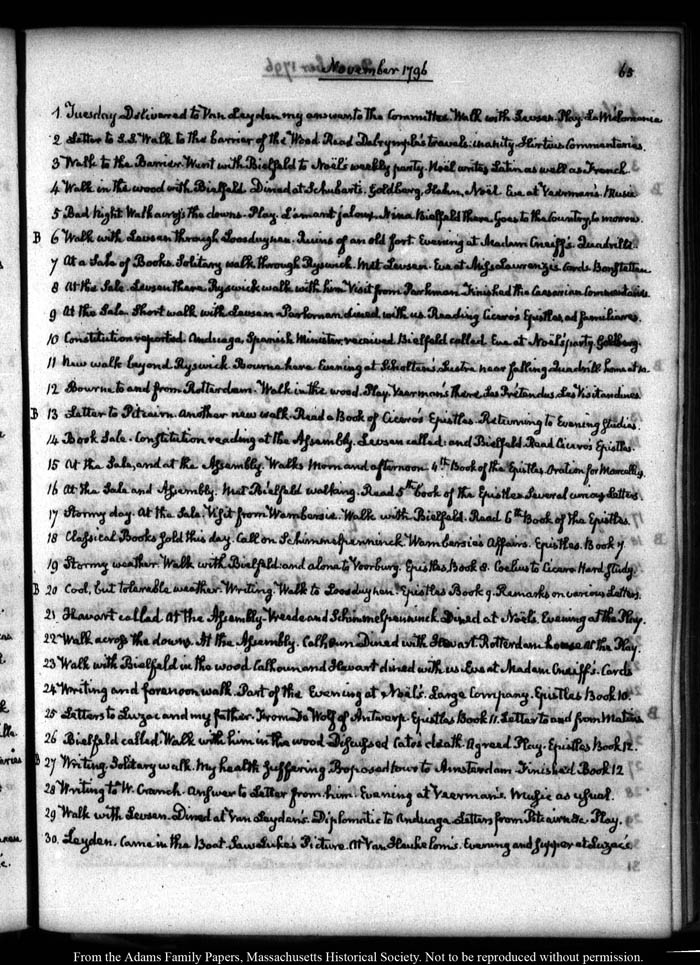 November 1796
65
1 Tuesday Delivered to Van Leyden my answer to the Committee. Walk with Levsen. Play. La Melomanie
2 Letter to S.S. Walk to the barrier of the Wood Read Dalrymple's travels: vanity. Hirtius Commentaries.
3 Walk to the Barrier. Went with Bielfeld to Noël's weekly party. Noël writes Latin as well as French.
4 Walk in the wood with Bielfeld. Dined at Schubart's. Goldberg, Hahn, Noël. Eve at Veerman's. Music
5 Bad Night Walk across the downs. Play. L'amant jaloux. Nina Bielfeld there. Goes to the Country, to morrow.
B 6 Walk with Levsen through Loosduynen. Ruins of an old fort. Evening at Madam Oneiff's. Quadrille.
7 At a Sale of Books. Solitary walk through Ryswick. Met Levsen. Eve at Miss Lawrenzi's Cards Bonstetten.
8 At the Sale. Levsen there. Ryswick walk with him Visit from Parkman Finished the Caesarian Commentaries.
9 At the Sale. Short walk with Levsen. Parkman dined with us. Reading Cicero's Epistles, ad familiares.
10 Constitution reported. Anduaga, Spanish Minister received Bielfeld called. Eve at Noël's party. Goldberg.
11 New walk beyond Ryswick. Bourne here. Evening at Scholten's. Lustre near falling Quadrill: home at 12.
12 Bourne to and from Rotterdam. Walk in the wood. Play Veerman's there. Les Prétendus. Les Visitandines.
B 13 Letter to Pitcairn. Another new walk. Read a Book of Cicero's Epistles. Returning to Evening Studies.
14 Book Sale. Constitution reading at the Assembly. Levsen called: and Bielfeld. Read Cicero's Epistles.
15 At the Sale, and at the Assembly. Walks Morn and afternoon. 4th Book of the Epistles. Oration for Marcellus.
16 At the Sale and Assembly. Met Bielfeld walking. Read 5th book of the Epistles. Several curious Letters.
17 Stormy day. At the Sale. Visit from Wambersie. Walk with Bielfeld. Read 6th Book of the Epistles.
18 Classical Books sold this day. Call on Schimmelpenninck Wambersie's Affairs. Epistles. Book 7.
19 Stormy weather. Walk with Bielfeld: and alone to Voorburg. Epistles, Book 8. Coelius to Cicero Hard study.
B 20 Cool, but tolerable weather. Writing. Walk to Loosduynen. Epistles Book 9. Remarks on various Letters.
21 Havart called At the Assembly. Vreede and Schimmelpenninck. Dined at Noël's. Evening at the Play.
22 Walk across the downs. At the Assembly. Calhoun Dined with Havart Rotterdam house at the Play.
23 Walk with Bielfeld in the wood Calhoun and Havart dined with us. Eve at Madam Oneiff's. Cards
24 Writing and forenoon walk. Part of the Evening at Noël's. Large Company. Epistles Book 10.
25 Letters to Luzac and my father. From De Wolf of Antwerp. Epistles Book 11. Letter to and from Matius
26 Bielfeld called. Walk with him in the wood Discussed Cato's death. Agreed Play. Epistles Book 12.
B 27 Writing. Solitary walk. My health suffering Proposed tour to Amsterdam Finished Book 12
28 Writing to W. Cranch. Answer to Letter from him. Evening at Veerman's. Music as usual.
29 Walk with Levsen. Dined at Van Leyden's. Diplomatic to Anduaga Letters from Pitcairn &c. Play.
30. Leyden. Came in the Boat. Saw Luke's Picture. At Van Heukelom's. Evening and supper at Luzac's
From the Adams Family Papers, Massachusetts Historical Society. Not to be reproduced without permission.